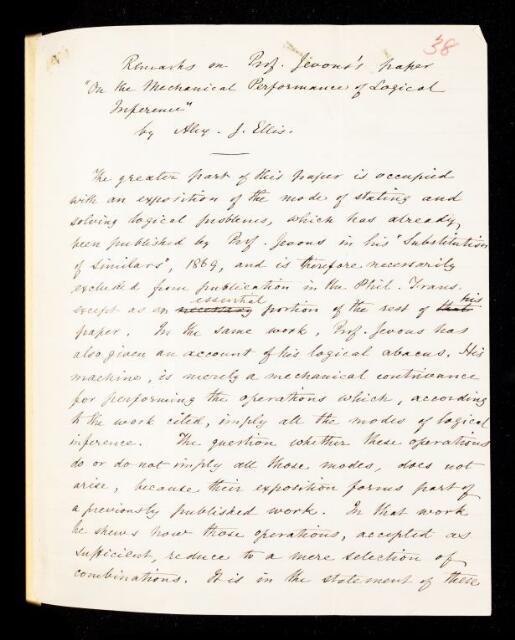 38
Remarks on Prof. Jevons's paper
"On the Mechanical Performance of Logical
Inference"
by Alex. J. Ellis.
The greater part of this paper is occupied
with an exposition of the mode of stating and
solving logical problems, which has already,
been published by Prof. Jevons in his "Substitution
of Similars", 1869, and is therefore necessarily
excluded from publication in the Phil. Trans.
essential his
except as an necessary portion of the rest of that
paper. In the same work, Prof. Jevons has
also given an account of his logical abacus. His
machine, is merely a mechanical contrivance
for performing the operations which, according
to the work cited, imply all the modes of logical
inference. The question whether these operations
do or do not imply all those modes, does not
arise, because their exposition forms part of
a previously published work. In that work
he shews how those operations, accepted as
sufficient, reduce to a mere selection of
combinations. It is in the statement of these